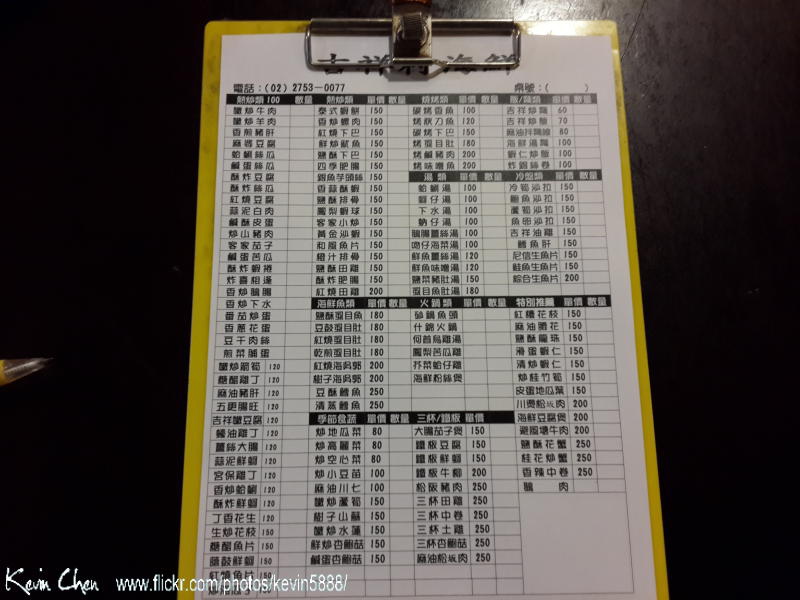 吉祥村海鮮
電話：(02) 2753-0077 桌號：( )
熱炒類 100 數量 熱炒類 單價 數量 燒烤類 單價 數量 飯/麵類 單價 數量
孅炒牛肉 泰式蝦餅 150 碳烤香魚 100 吉祥炒麵 60
孅炒羊肉 香炒螺肉 150 烤秋刀魚 120 吉祥炒飯 70
香煎豬肝 紅燒下巴 150 碳烤下巴 150 麻油拌麵線 80
麻婆豆腐 鮮炒魷魚 150 烤虱目肚 180 海鮮湯麵 100
蛤蜊絲瓜 鹽酥下巴 150 烤鹹豬肉 200 蝦仁炒飯 100
鹹蛋絲瓜 四季肥腸 150 烤味噌魚 200 炸銀絲卷 100
酥炸豆腐 銀魚芋頭絲 150 湯類 單價 數量 冷盤類 單價 數量
酥炸絲瓜 香蒜酥蝦 150 蛤蜊湯 100 冷筍沙拉 150
紅燒豆腐 鹽酥排骨 150 蚵仔湯 100 鮑魚沙拉 150
蒜泥白肉 鳳梨蝦球 150 下水湯 100 蘆筍沙拉 150
鹹酥皮蛋 客家小炒 150 蚋仔湯 100 魚卵沙拉 150
炒山豬肉 黃金沙蝦 150 鵝腸薑絲湯 100 吉祥油雞 150
客家茄子 和風魚片 150 吻仔海菜湯 100 鱈魚肝 150
鹹蛋苦瓜 橙汁排骨 150 鮮魚薑絲湯 120 尼信生魚片 150
酥炸蝦捲 鹽酥田雞 150 鮮魚味噌湯 120 鮭魚生魚片 150
炸喜相逢 酥炸肥腸 150 鹽菜豬肚湯 150 綜合生魚片 200
香炒鵝腸 紅燒田雞 200 虱目魚肚湯 180
香炒下水 海鮮魚類 單價 數量 火鍋類 單價 數量 特別推薦 單價 數量
番茄炒蛋 鹽酥虱目魚 180 砂鍋魚頭 紅糟花枝 150
香蔥花蛋 豆鼓虱目肚 180 什錦火鍋 麻油腰花 150
豆干肉絲 紅燒虱目肚 180 何首烏雞湯 鹽酥龍珠 150
煎菜脯蛋 乾煎虱目肚 180 鳳梨苦瓜雞 滑蛋蝦仁 150
孅炒箭筍 120 紅燒海吳郭 200 芥菜蛤仔雞 清炒蝦仁 150
糖醋雞丁 120 樹子海吳郭 200 海鮮粉絲煲 炒桂竹筍 150
麻油豬肝 120 豆酥鱈魚 250 皮蛋地瓜葉 150
五更腸旺 120 清蒸鱈魚 250 川燙松坂肉 200
吉祥孅豆腐 120 季節食蔬 單價 數量 三杯/鐵板 單價 海鮮豆腐煲 200
蠔油雞丁 120 炒地瓜菜 80 大腸茄子煲 150 避風塘牛肉 200
薑絲大腸 120 炒高麗菜 80 鐵板豆腐 150 鹽酥花蟹 250
蒜泥鮮蚵 120 炒空心菜 80 鐵板鮮蚵 150 桂花炒蟹 250
宮保雞丁 120 炒小豆苗 100 鐵板牛柳 200 香辣中卷 250
香炒蛤蜊 120 麻油川七 100 松阪豬肉 250 鵝肉
酥炸鮮蚵 120 孅炒蘆筍 150 三杯田雞 250
丁香花生 120 樹子山蘇 150 三杯中卷 250
生炒花枝 150 孅炒水蓮 150 三杯土雞 250
糖醋魚片 150 鮮炒杏鮑菇 150 三杯杏鮑菇 250
蔭鼓鮮蚵 150 鹹蛋杏鮑菇 150 麻油松坂肉 250
紅燒魚片 150
150
Kevin Chen www.flickr.com/photos/kevin5888/